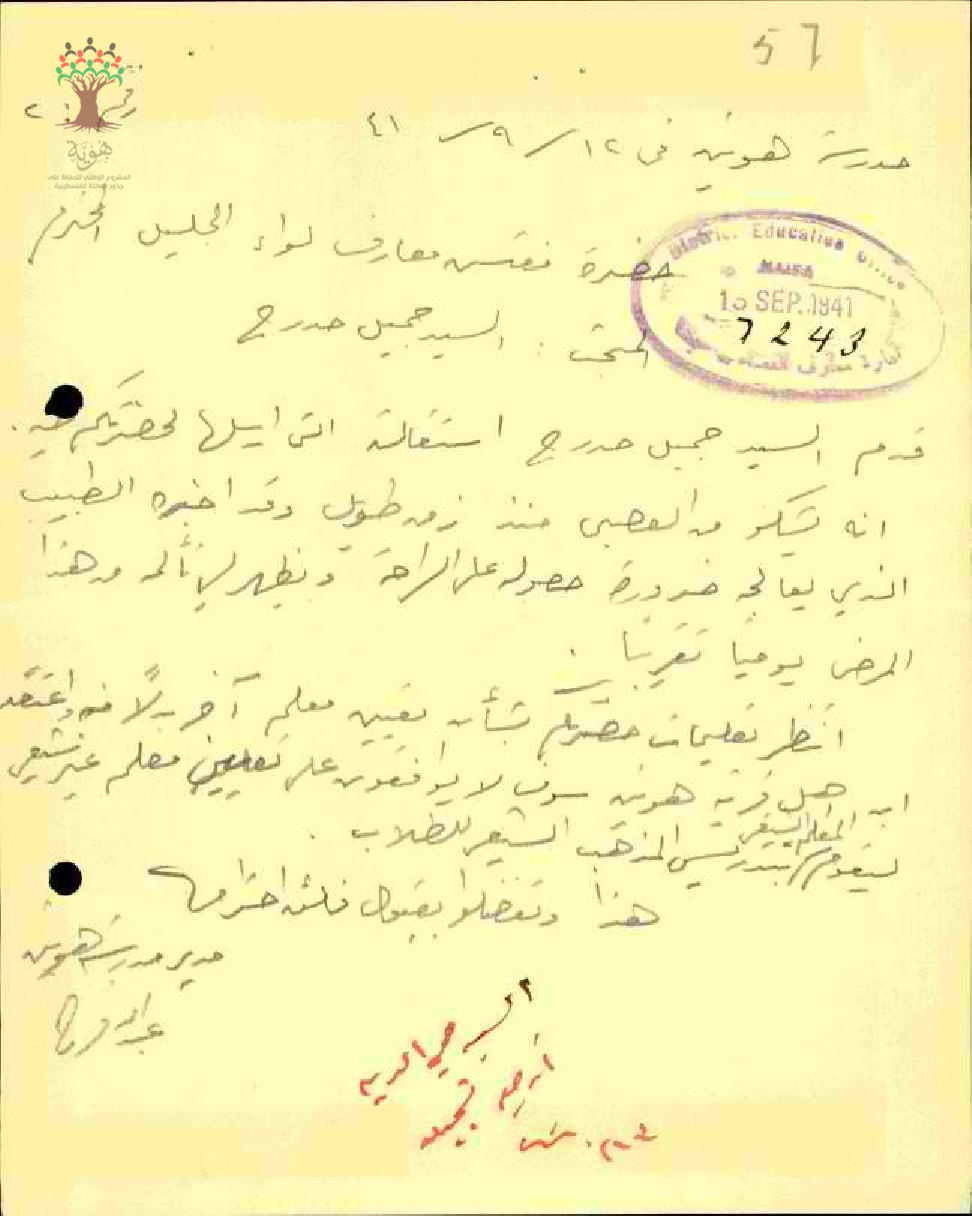 57
رقم : ٢
هُوِيَّة
المشروع الوطني للحفاظ على
جذور العائلة الفلسطينية
مدرسة هونين في ١٢/ ٩/ ٤١
حضرة مفتش معارف لواء الجليل المحترم
District Education Office
HAIFA
SEP. 1941
7243
المبحث : السيد جميل مدرج
قدم السيد جميل مدرج استقالته التي ارسلها لحضرتكم
انه يشكو من العصبي منذ زمن طويل وقد اخبره الطبيب
الذي يعالجه ضرورة حصوله على الراحة ويظهر لي تألمه من هذا
المرض يومياً تقريباً .
انتظر تعليمات حضرتكم بشأن تعيين معلم آخر بدلاً منه واعتقد
ان اهل قرية هونين سوف لا يوافقون على تعيين معلم غير شيعي
ليقوم المعلم الشيعي بتدريس المذهب الشيعي للطلاب .
هذا وتفضلوا بقبول فائق احترامي
مدير مدرسة هونين